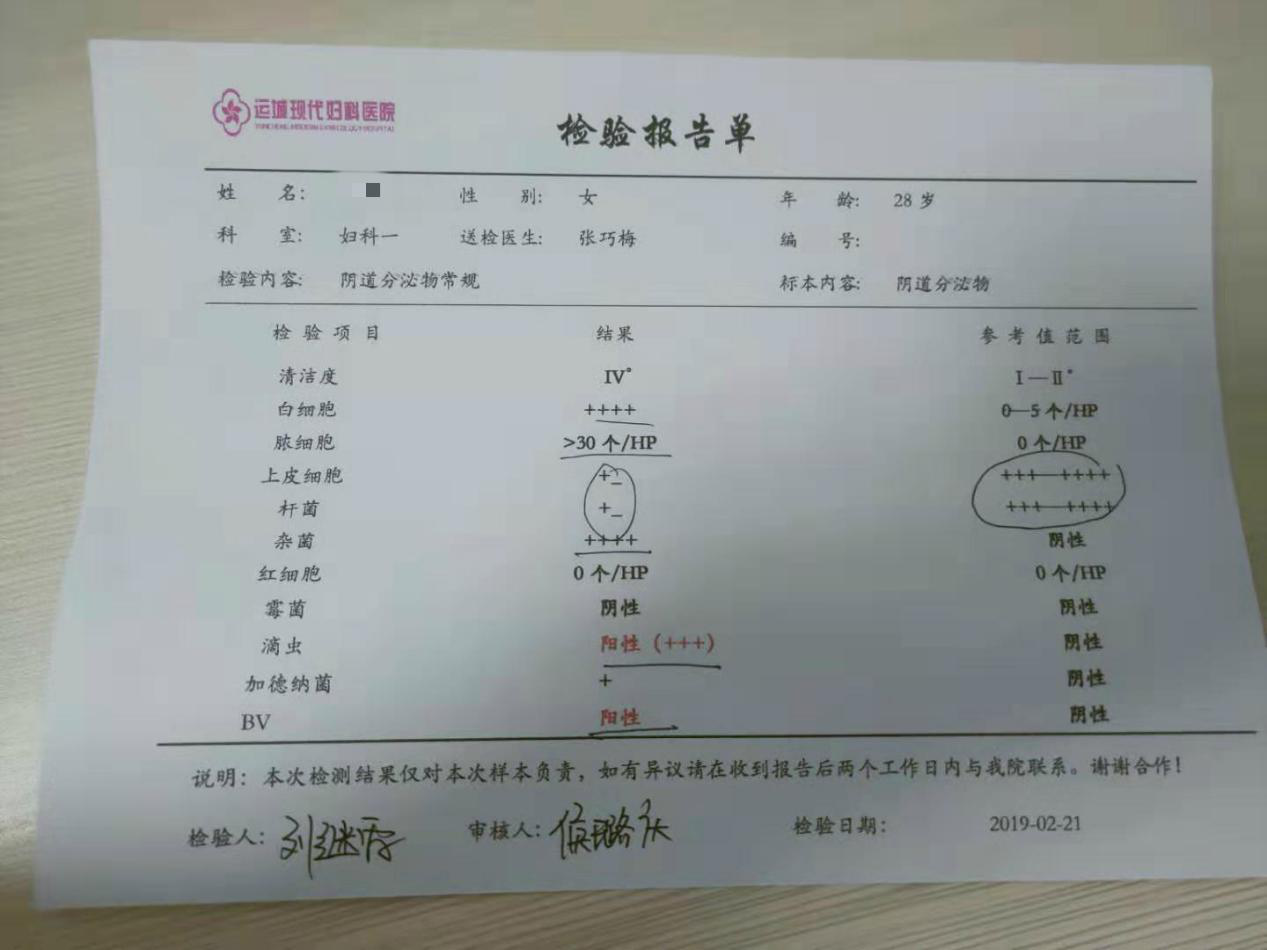 运城现代妇科医院
YUNCHENG MODERN GYNECOLOGY HOSPITAL
检验报告单
姓 名: 性 别: 女 年 龄: 28 岁
科 室: 妇科一 送检医生: 张巧梅 编 号:
检验内容: 阴道分泌物常规 标本内容: 阴道分泌物
检 验 项 目 结果 参 考 值 范 围
清洁度 IV° I—II°
白细胞 ++++ 0—5 个/HP
脓细胞 >30 个/HP 0 个/HP
上皮细胞 +_ +++—++++
杆菌 +_ +++—++++
杂菌 ++++ 阴性
红细胞 0 个/HP 0 个/HP
霉菌 阴性 阴性
滴虫 阳性（+++） 阴性
加德纳菌 + 阴性
BV 阳性 阴性
说明: 本次检测结果仅对本次样本负责，如有异议请在收到报告后两个工作日内与我院联系。谢谢合作！
检验人: 审核人: 检验日期: 2019-02-21